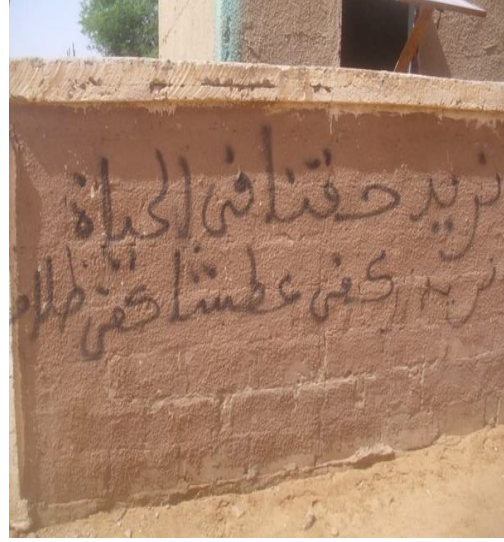 نريد حقنا في الحياة
نريد كفى عطشا كفى ظلام